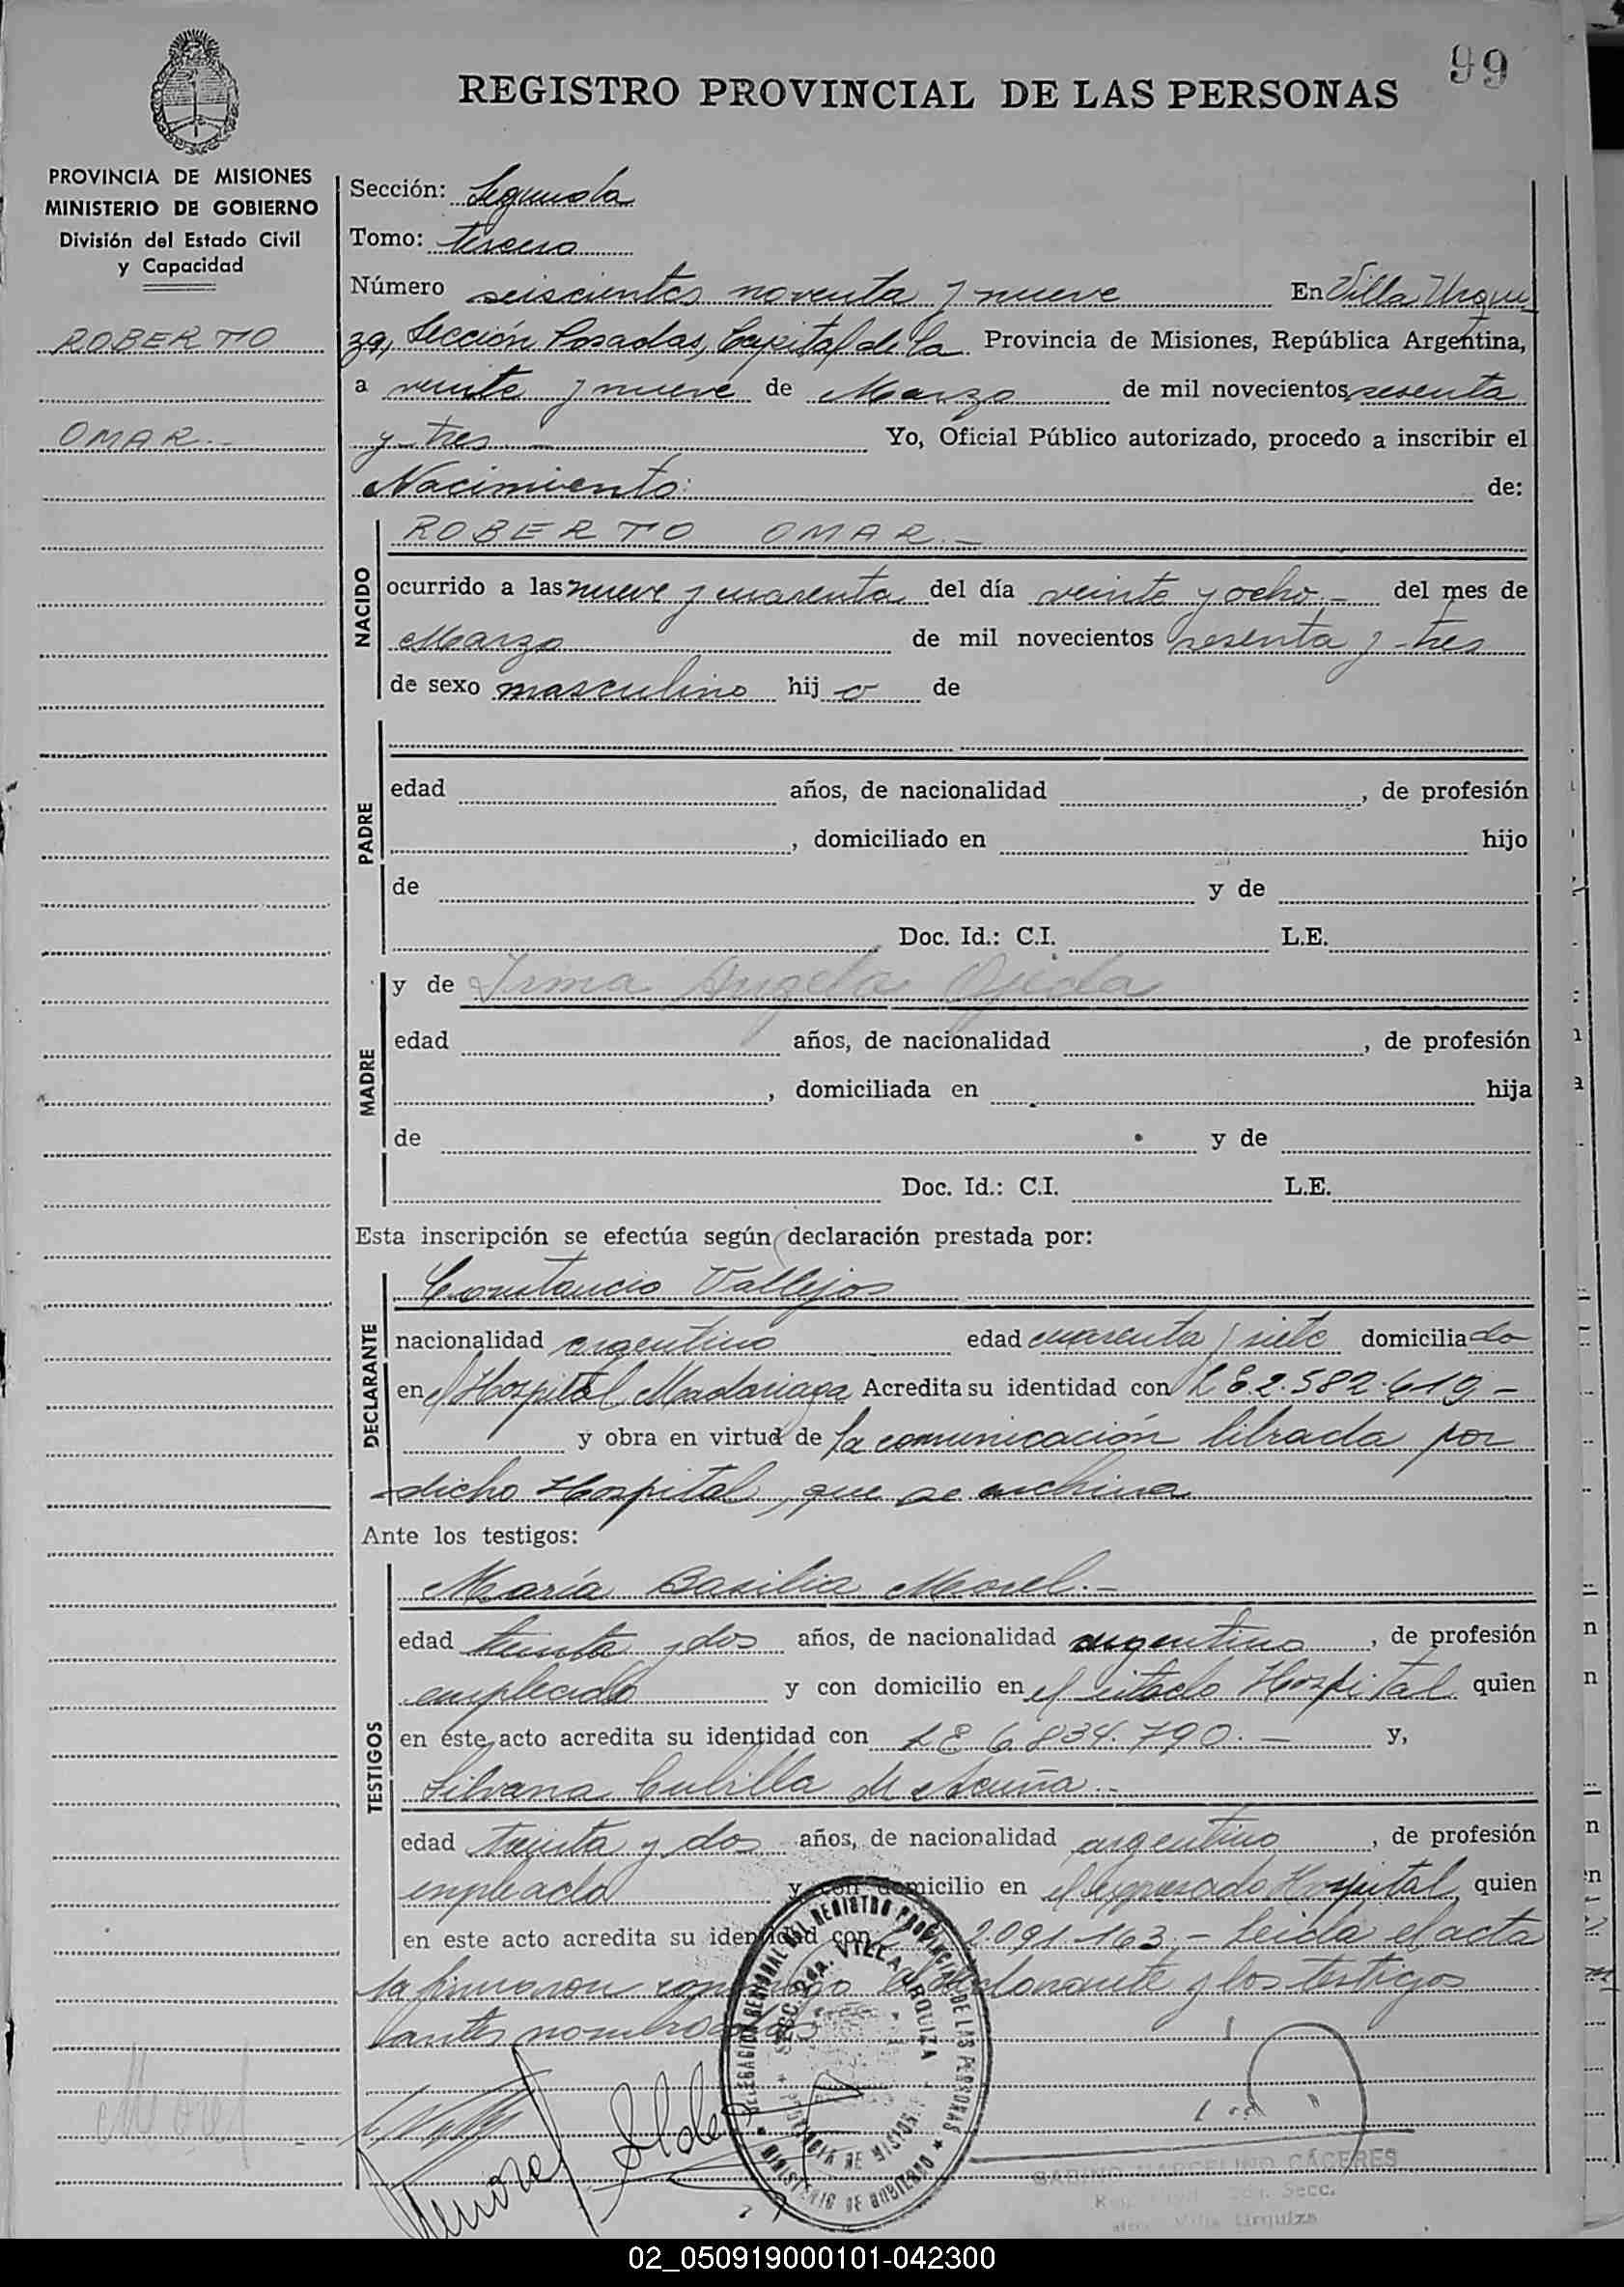 99
REGISTRO PROVINCIAL DE LAS PERSONAS
PROVINCIA DE MISIONES
MINISTERIO DE GOBIERNO
División del Estado Civil
y Capacidad
ROBERTO
OMAR.-
Sección: Segunda
Tomo: tercero
Número seiscientos noventa y nueve En Villa Urqui-
za, Sección Posadas, Capital de la Provincia de Misiones, República Argentina,
a veinte y nueve de Marzo de mil novecientos sesenta
y tres Yo, Oficial Público autorizado, procedo a inscribir el
Nacimiento: de:
NACIDO
ROBERTO OMAR.-
ocurrido a las nueve y cuarenta del día veinte y ocho.- del mes de
Marzo de mil novecientos sesenta y tres
de sexo masculino hij o de
PADRE
edad años, de nacionalidad , de profesión
, domiciliado en hijo
de y de
Doc. Id.: C.I. L.E.
MADRE
y de Irma Angela Ojeda
edad años, de nacionalidad , de profesión
, domiciliada en hija
de y de
Doc. Id.: C.I. L.E.
Esta inscripción se efectúa según declaración prestada por:
DECLARANTE
Constancio Vallejos
nacionalidad argentino edad cuarenta y siete domiciliado
en el Hospital Madariaga Acredita su identidad con L E 2.582.619-
y obra en virtud de la comunicación librada por
dicho Hospital, que se archiva
Ante los testigos:
TESTIGOS
María Basilia Morel.-
edad treinta y dos años, de nacionalidad argentina, de profesión
empleada y con domicilio en el citado Hospital quien
en este acto acredita su identidad con L E 6.834.790.- y,
Silvana Cubilla de Acuña.-
edad treinta y dos años, de nacionalidad argentino, de profesión
empleada y con domicilio en el expresado Hospital, quien
en este acto acredita su identidad con 2.091.163.- Leida el acta
la firmaron conmigo el declarante y los testigos
antes nombrados
DELEGACION REGIONAL DEL REGISTRO PROVINCIAL DE LAS PERSONAS
SECC. 2da. VILLA URQUIZA
PROVINCIA DE MISIONES
MINISTERIO DE GOBIERNO
Morel
Morel
MARCELINO CÁCERES
Secc.
Villa Urquiza
02_050919000101-042300